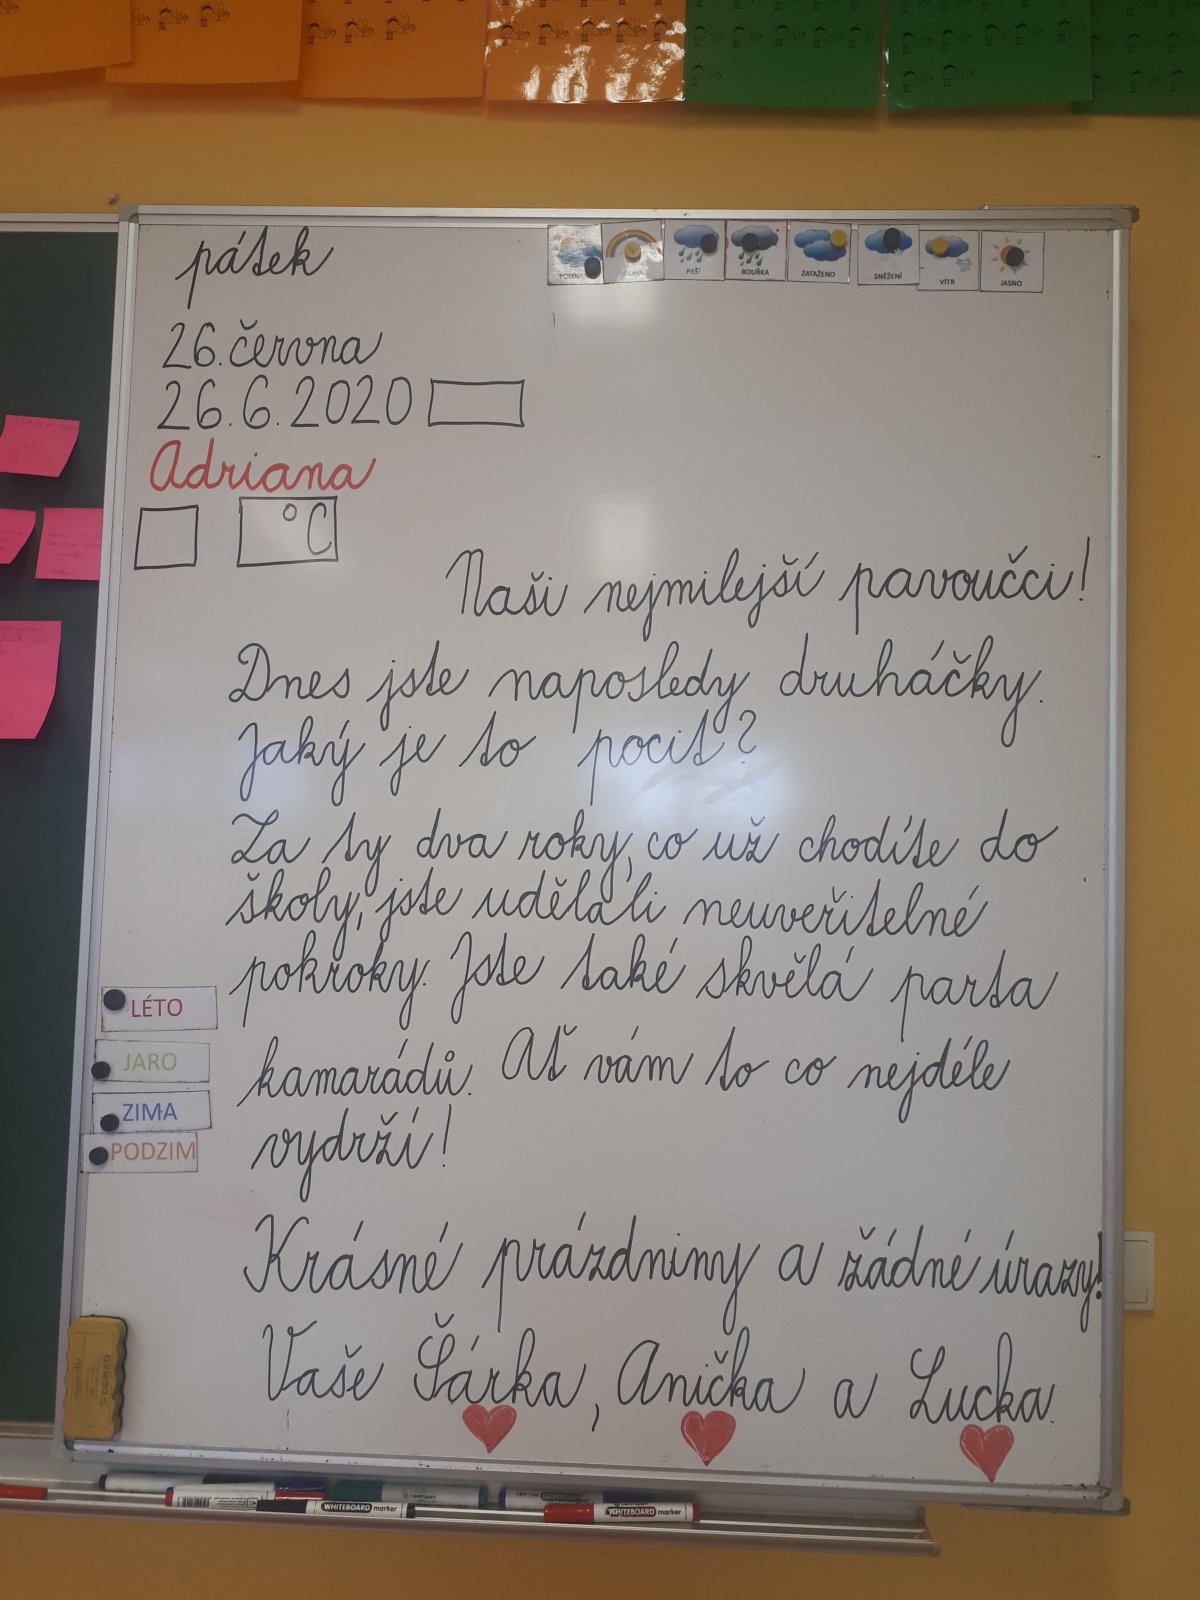 pátek
PRŠÍ
BOUŘKA
ZATAŽENO
SNĚŽENÍ
VÍTR
JASNO
26. června
26.6.2020
Adriana
°C
Naši nejmilejší pavoučci!
Dnes jste naposledy druháčky.
Jaký je to pocit?
Za ty dva roky, co už chodíte do
školy, jste udělali neuvěřitelné
pokroky. Jste také skvělá parta
kamarádů. Ať vám to co nejdéle
vydrží!
LÉTO
JARO
ZIMA
PODZIM
Krásné prázdniny a žádné úrazy!
Vaše Šárka, Anička a Lucka
DONAU
WHITEBOARD marker
WHITEBOARD marker